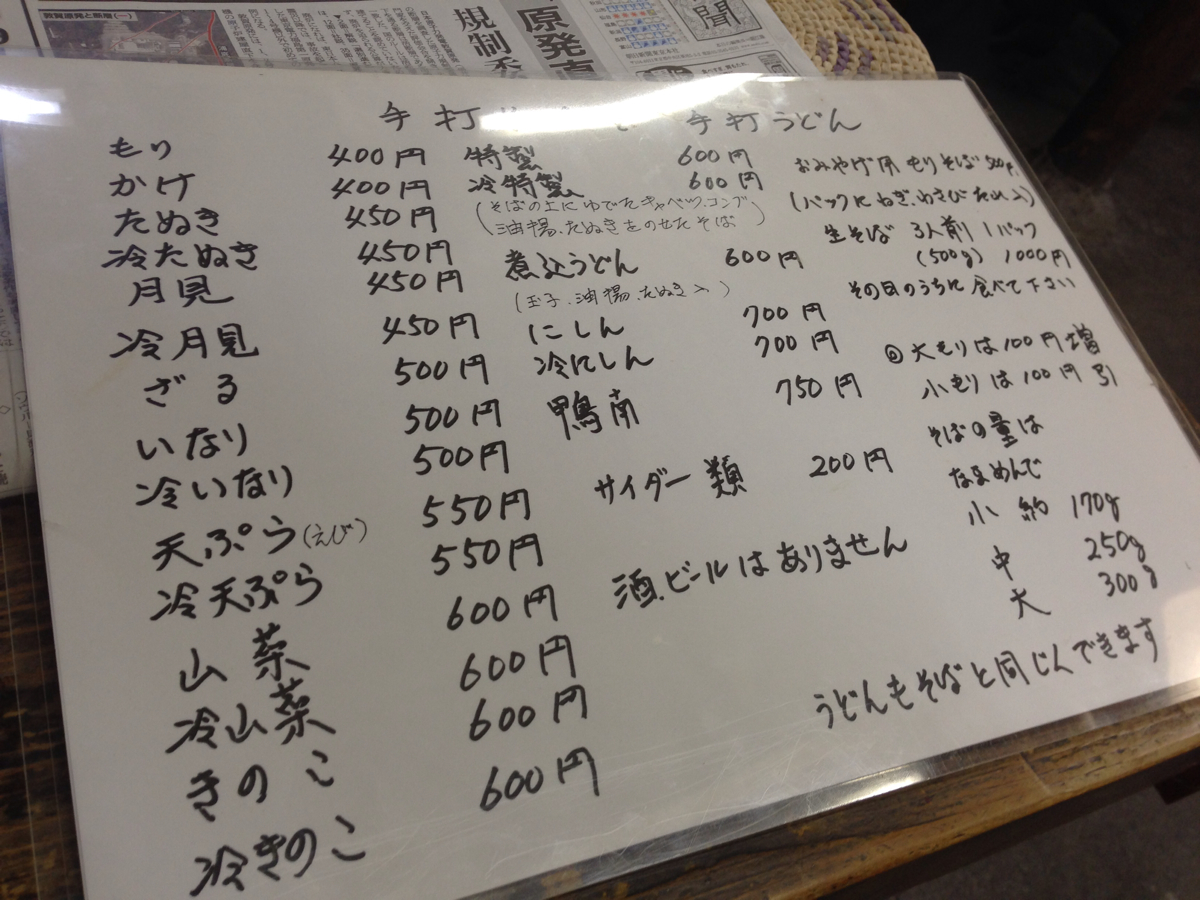 敦賀原発と断層(一)
規制委
原発直
聞
手打 手打うどん
もり 400円
かけ 400円
たぬき 450円
冷たぬき 450円
月見 450円
冷月見 450円
ざる 500円
いなり 500円
冷いなり 500円
天ぷら(えび) 550円
冷天ぷら 550円
山菜 600円
冷山菜 600円
きのこ 600円
冷きのこ 600円
特製 600円
冷特製 600円
(そばの上にゆでたキャベツ、コンブ
油揚、たぬきをのせたそば)
煮込うどん 600円
(玉子、油揚、たぬき入)
にしん 700円
冷にしん 700円
鴨南 750円
サイダー類 200円
酒、ビールはありません
おみやげ用 もりそば 500円
(パックにねぎ、わさび たれ入)
生そば 3人前 1パック
(500g) 1000円
その日のうちに食べて下さい
◎大もりは100円増
小もりは100円引
そばの量は
なまめんで
小 約 170g
中 250g
大 300g
うどんもそばと同じんできます